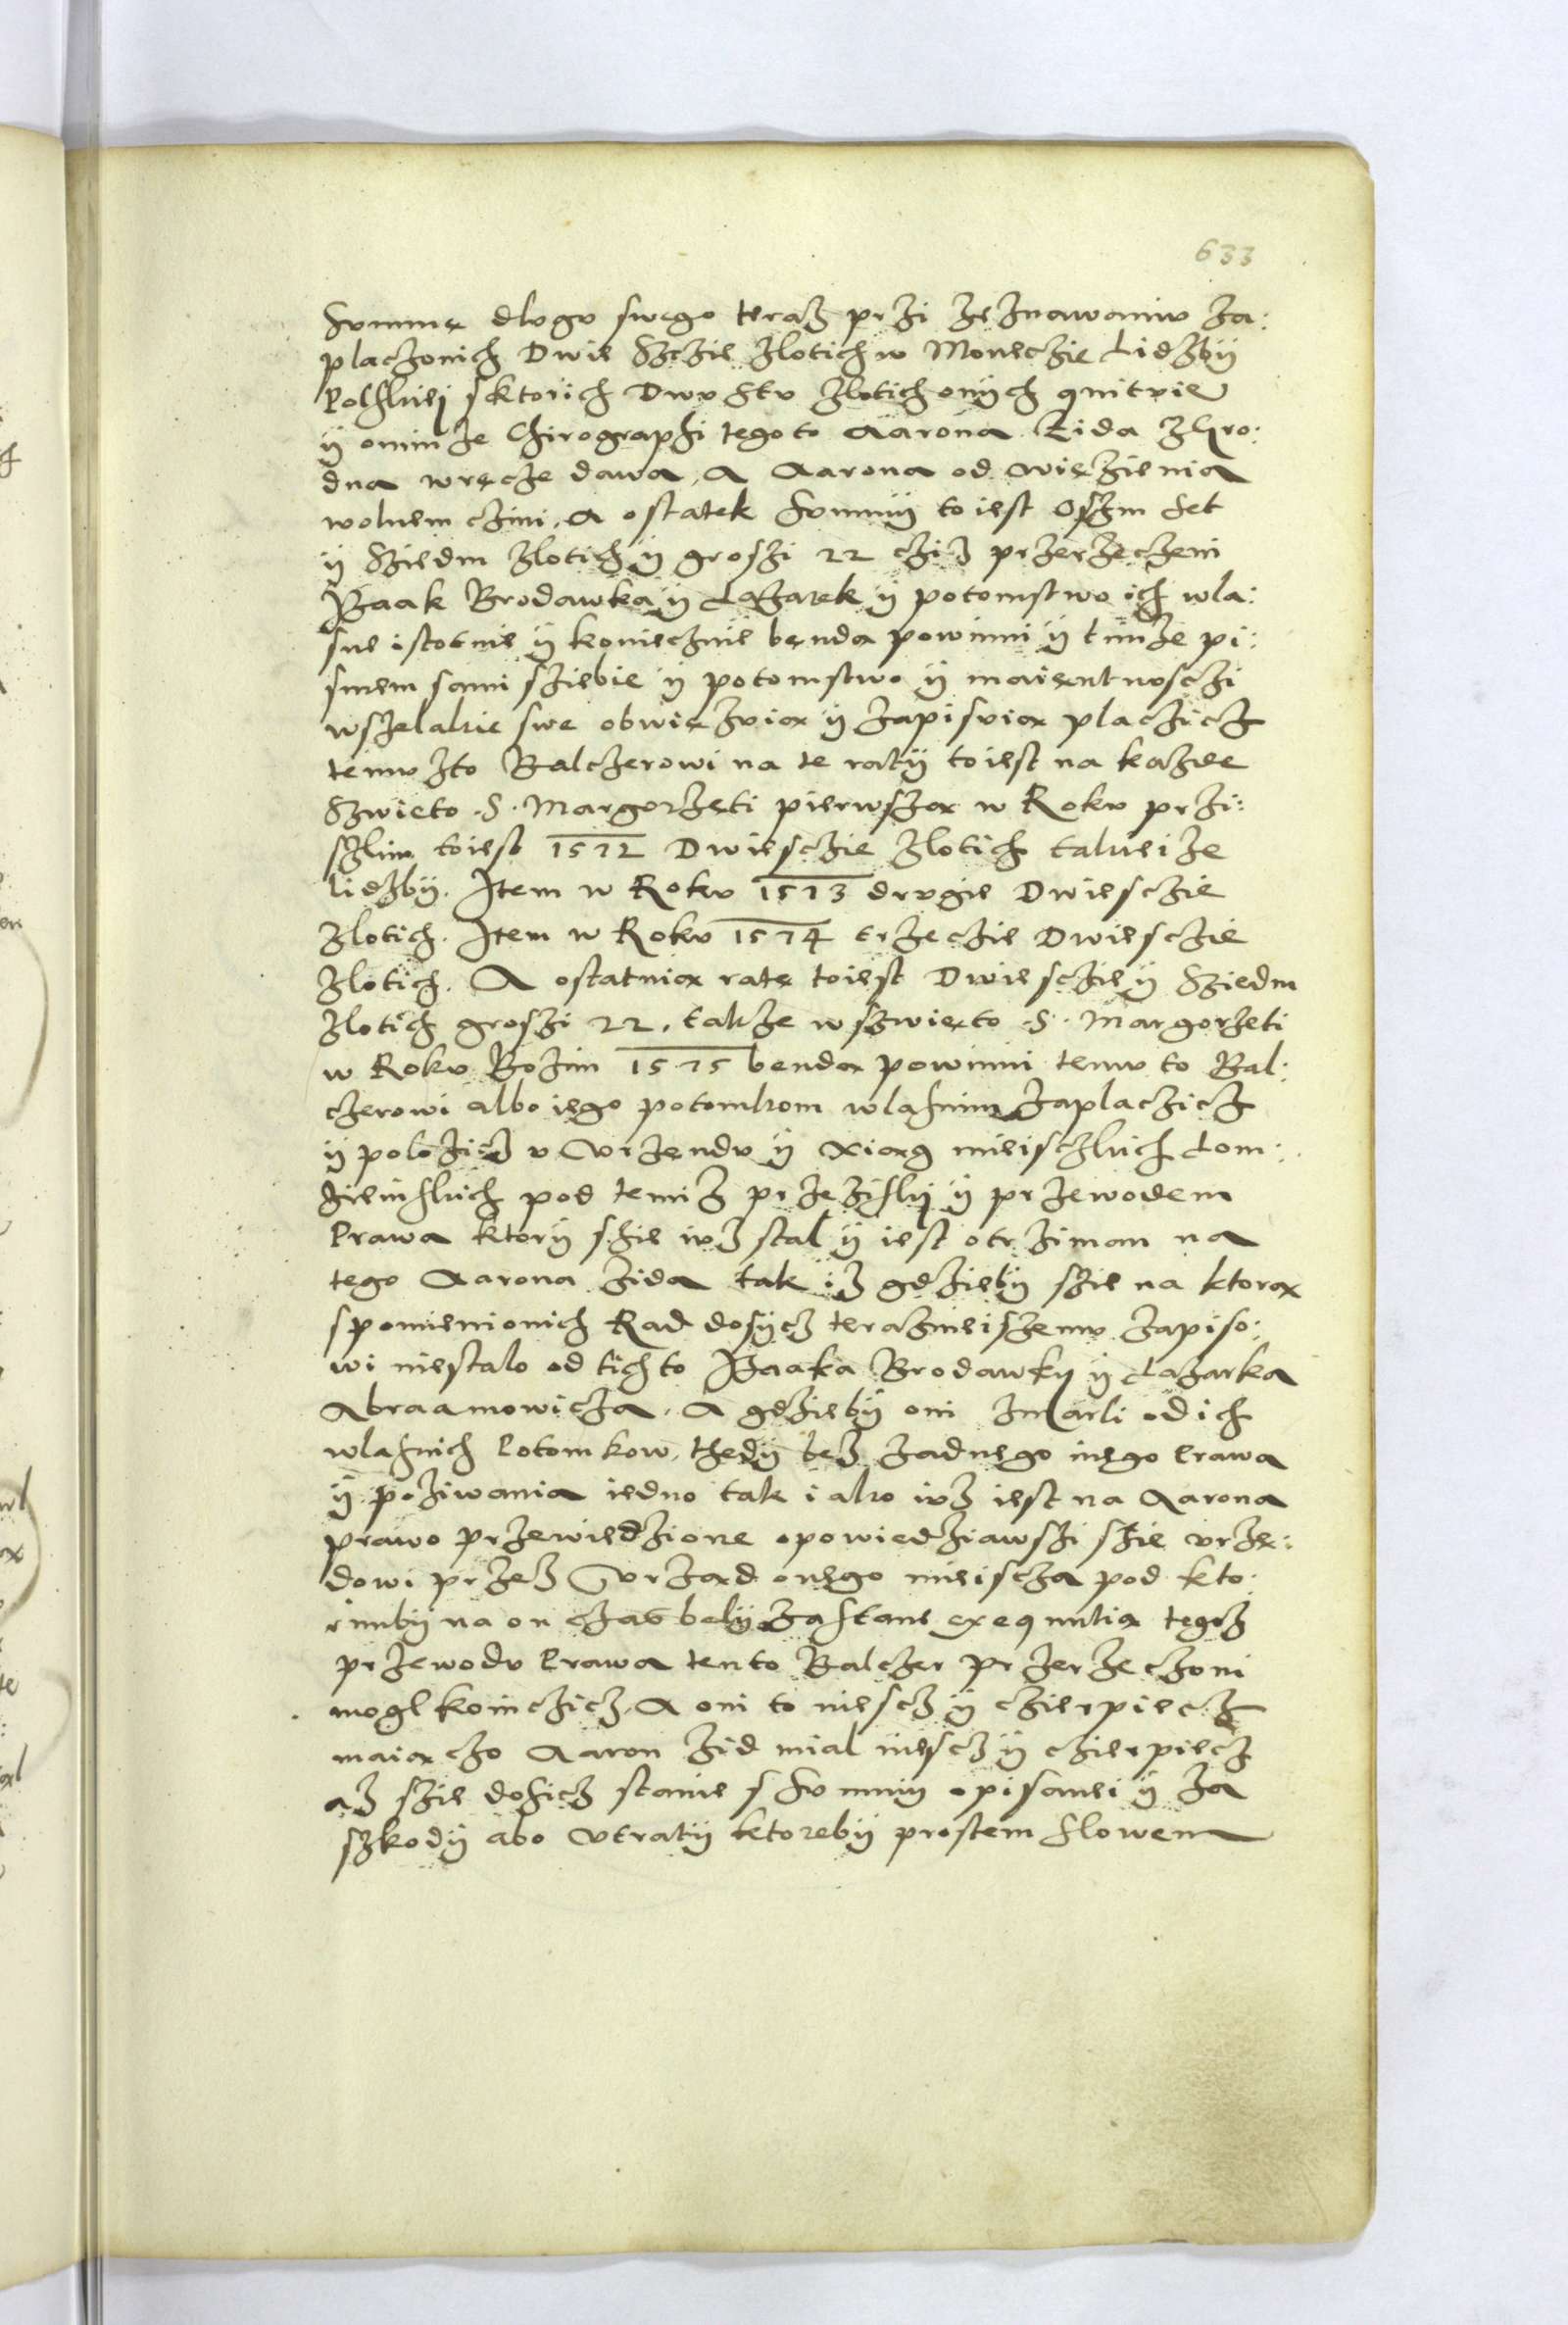 633
Summę dlugu swego teraz przi zeznawaniu za:
placzonich Dwie Sczie zlotich w Moneczie Lidzby
Polskiei s ktorich Dwu stu zlotich onych qnituie
y onim ze Chirographi tegoto Aarona Zida z kro:
dna wręcze dawa, A Aarona od więzienia
wolnem czini, A ostatek Summy to iest Oszm set
y Sziedm zlotich y groszi 22 cziz przerzeczeni
Izaak Brodawka y Lazarek y potomstwo ich wla:
sne istotnie y koniecznie bęndą powinni y timze pi:
smem sami sziebie y potomstwo y maięntnosczi
wszelakie swe obwięzuią y zapisuią placzicz
temuzto Balczerowi na te raty to iest na kazde
Szwięto .S. Margorzęti pierwszą w Roku przi:
szlim toiest 1572 Dwiesczie zlotich takieize
lidzby. Item w Roku 1573 drugie Dwiesczie
Zlotich. Item w Roku 1574 trzeczie Dwiesczie
Zlotich. A ostatnią ratę toiest Dwiesczie y Sziedm
Zlotich groszi 22. takze w szwięto .S. Margorzeti
w Roku Bozim 1575 bendą powinni temu to Bal:
czerowi albo iego potomkom wlasnim zaplaczicz
y polozicz u Urzendu y Xiąg mieisczkich Lom:
zienskich pod temiz przezisky y przewodem
Prawa ktory szie iuz stal y iest otrziman na
tego Aarona zida tak iz gdzieby szie na ktorą
spomienionich Rad dosycz terazneiszemu zapiso:
wi niestalo od tichto Izaaka Brodawky y Lazarka
Abraamowicza, A gdzieby oni zmarli od ich
wlasnich Potomkow, thedy bez zadnego inęgo Prawa
y poziwania iedno tak iako iuz iest na Aarona
prawo przewiedzione opowiedziawszi szie urzę:
dowi przez Urząd onęgo mieiscza pod kto:
rimby na on czas bely zastane exequutią tegoz
przewodu Prawa tento Balczer przerzeczoni
mogl koinczicz, A oni to niescz y czierpiecz
maią czo Aaron zid mial niescz y czierpiecz
az szie dosicz stanie s summy opisanei y za
szkody abo utraty ktoreby prostem slowem